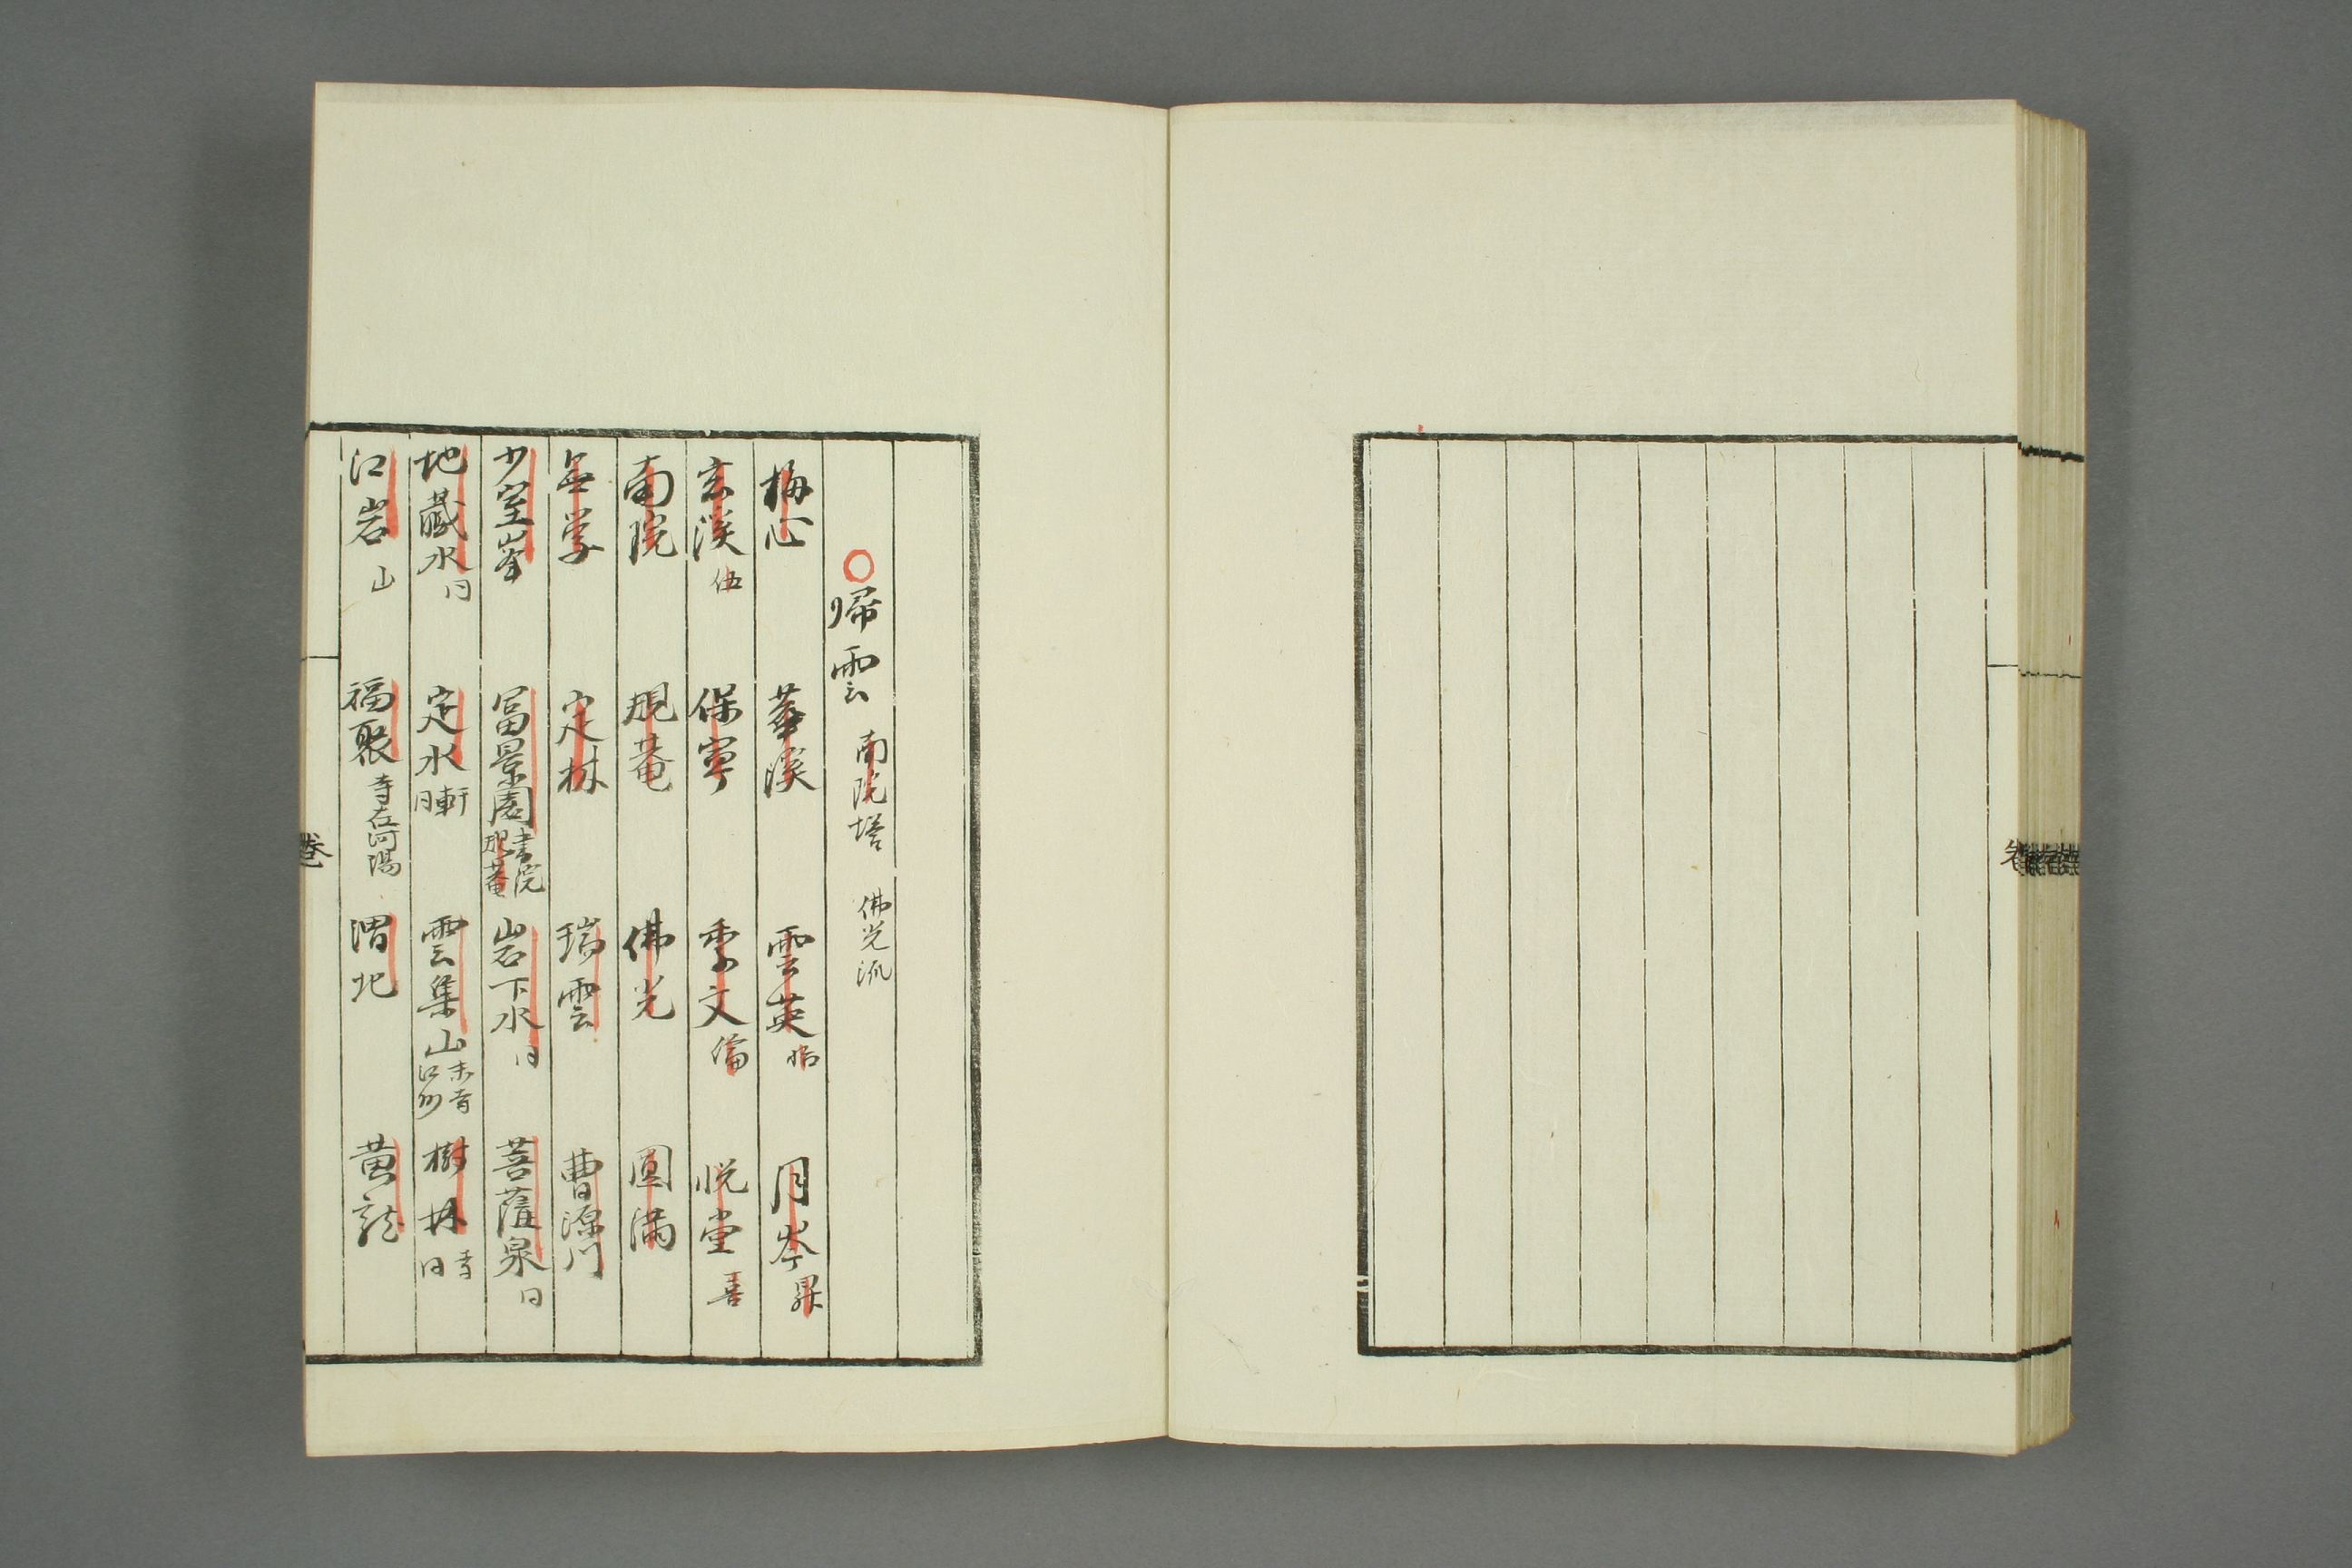 ○歸雲 南院塔 佛光派
梅心 華溪 雲英怡 月岑昇
玄溪伍 保寧 季文倫 悦堂喜
南院 規菴 佛光 圓滿
無学 定林 瑞雲 曹源川
少室峯 冨景園書院規菴 岩下水日 菩薩泉日
地藏水日 定水軒日 雲集山 江州 樹林寺日
江岩山 福聚寺在河陽 渭北 黄龍
卷